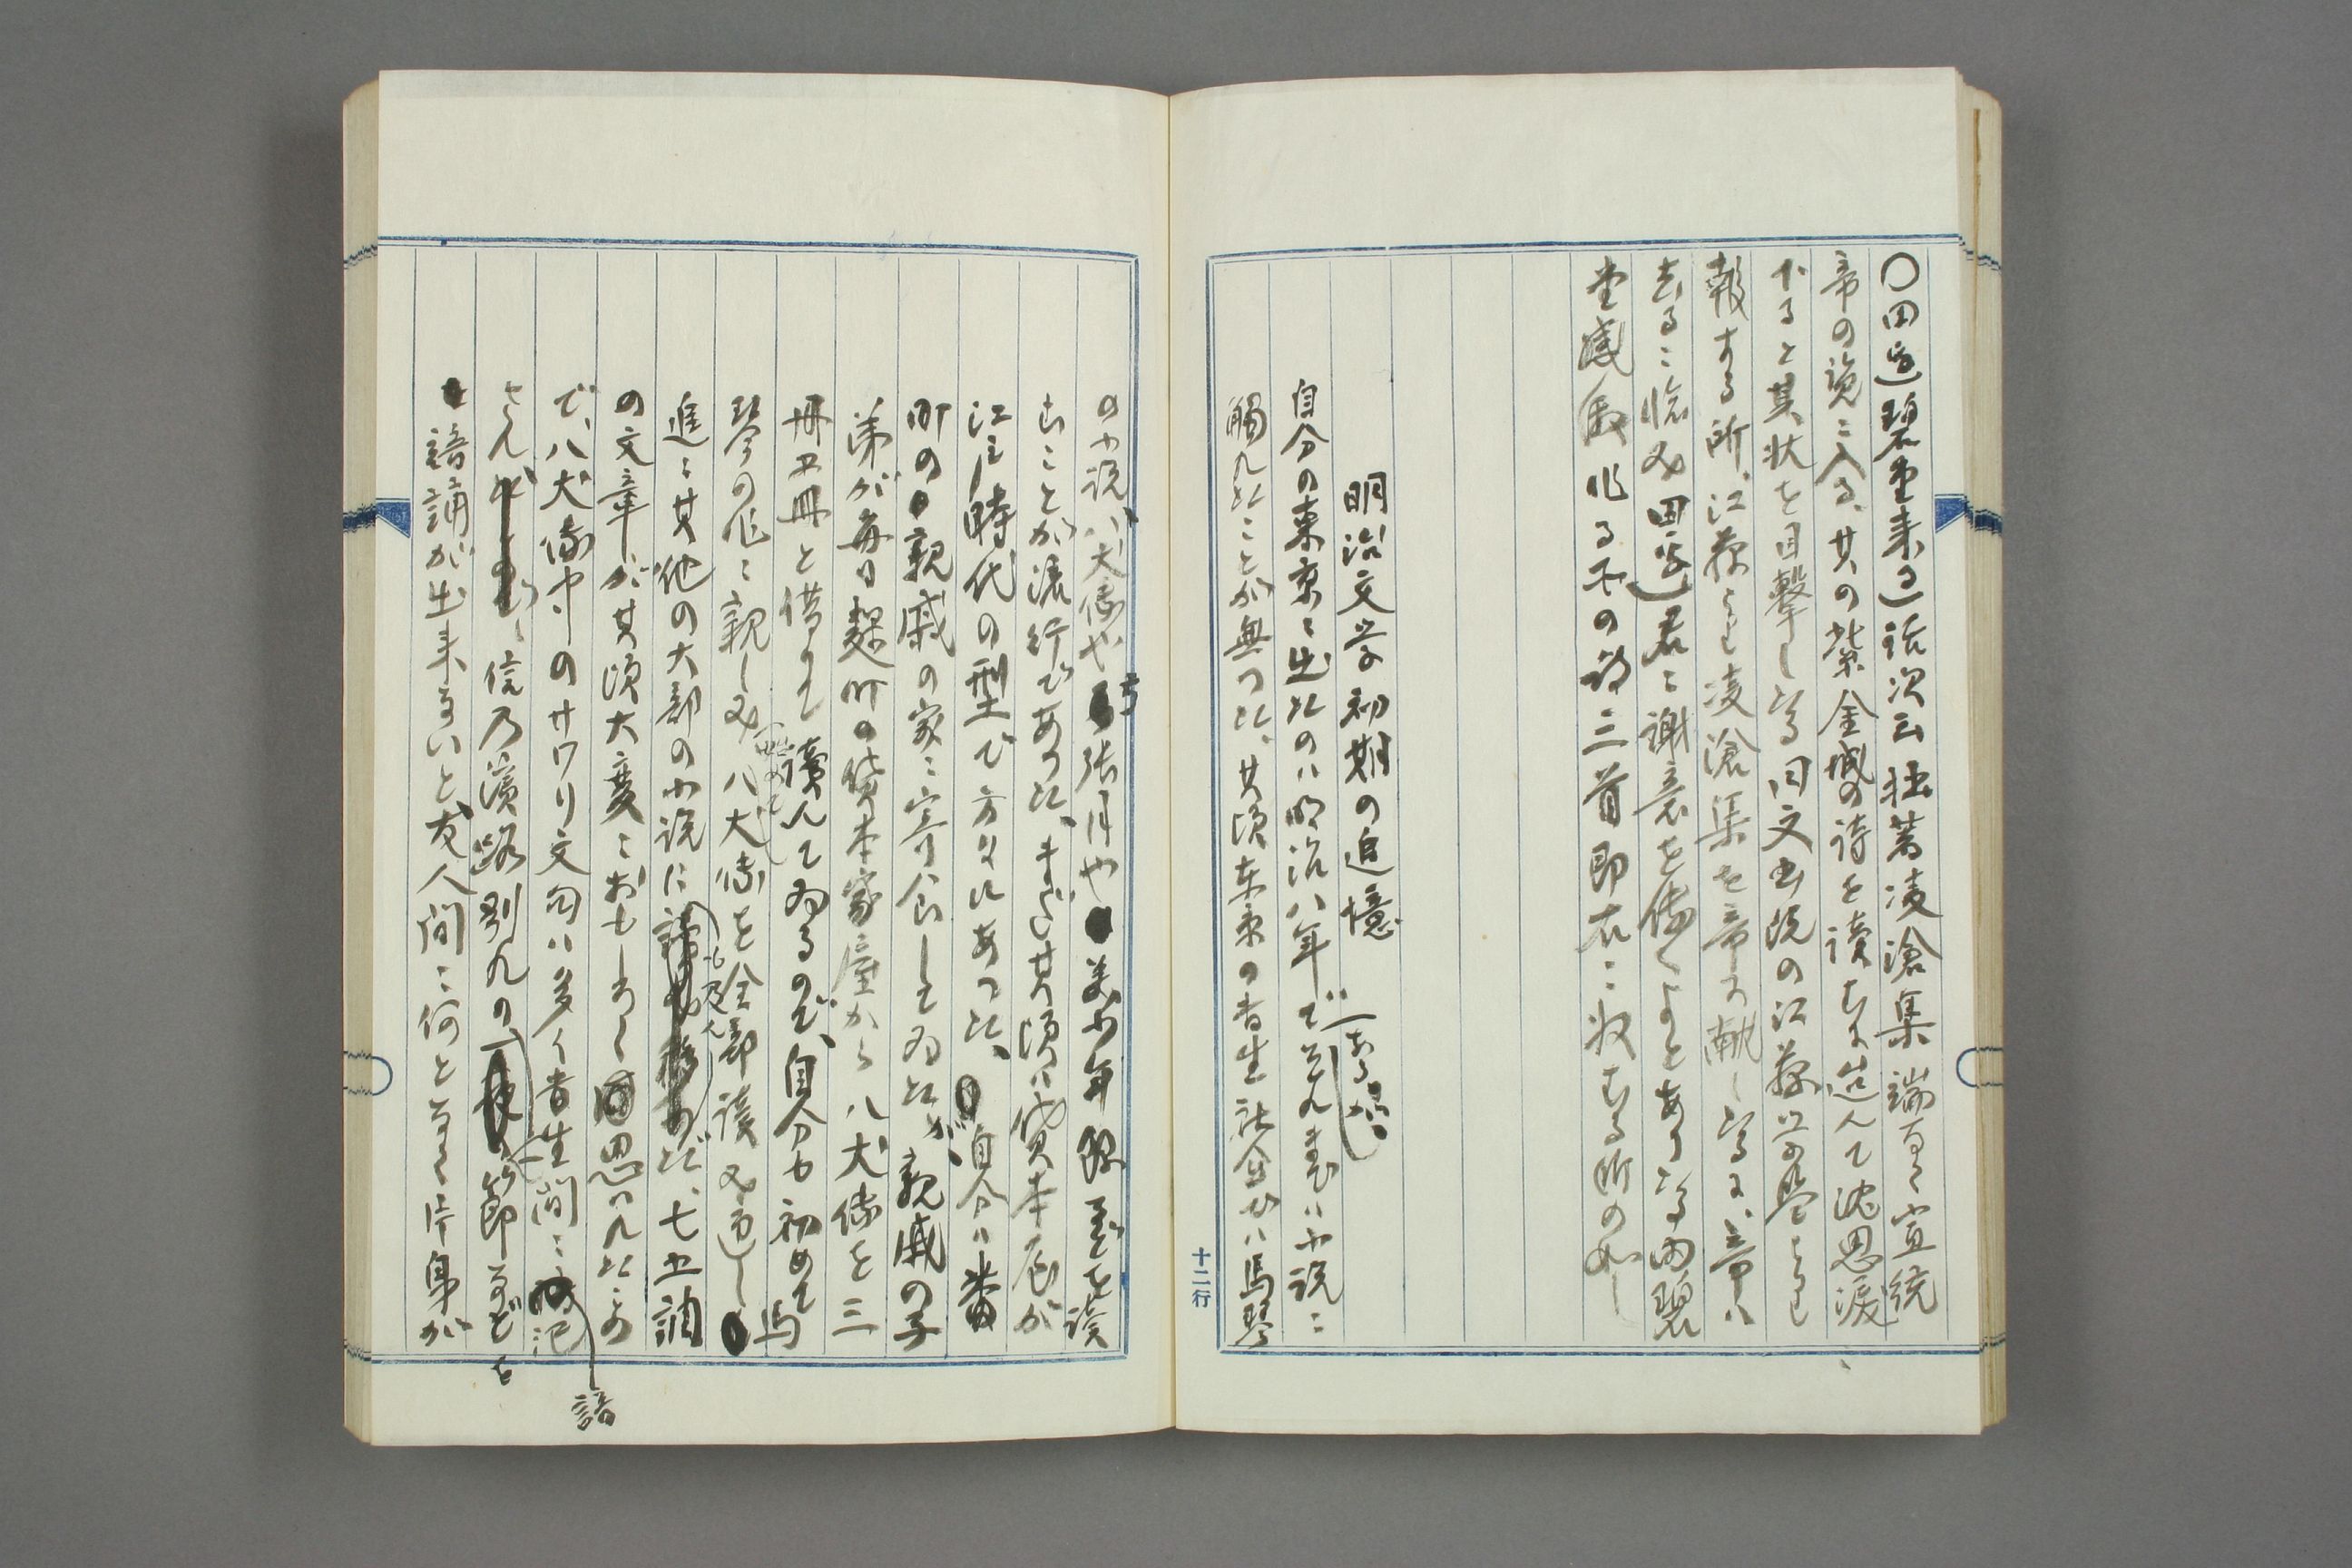 〇田邊碧堂来る、話次云拙著凌滄集端なく宣統
帝の覧に入る、其の紫金城の詩を読むに逆んで沈思涙
下ると其状を目撃したる同文書院の江藤学監より
報する所、江藤より凌滄集を帝に献したるに、帝は
去るに臨み田邊君に謝意を傳へよとありたる由碧
堂感激作る所の詩三首即右に収むる所の如し
明治文学初期の追憶
自分の東京に出たのは明治八年であるが、それまでは小説に
觸れたことが無つた、其頃東京の書生社会では馬琴
の小説、八犬傳や弓張月や美少年録などを読
むことが流行であつた、まだ其頃は貸本屋が
江戸時代の型で方々にあつた、自分は番
町の親戚の家に寄食してゐたが、親戚の子
弟が毎日麹町の貸本家屋から八犬傳を三
冊五冊と借りて讀んでゐるので、自分も初めて馬
琴の作に親しみ始めて八犬傳を全部讀み通し
進んで其他の大部の小説にも及んだ、七五調
の文章が其頃大変におもしろく思はれたので
で、八犬傳中のサワリ文句は多く書生間に諳記
され、信乃濱路別れの一節などを
諳誦が出来ないと友人間に何となく片身が
十二行